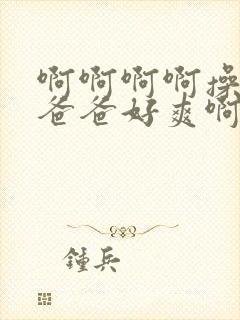 啊啊啊啊操
爸爸好爽啊
鍾兵